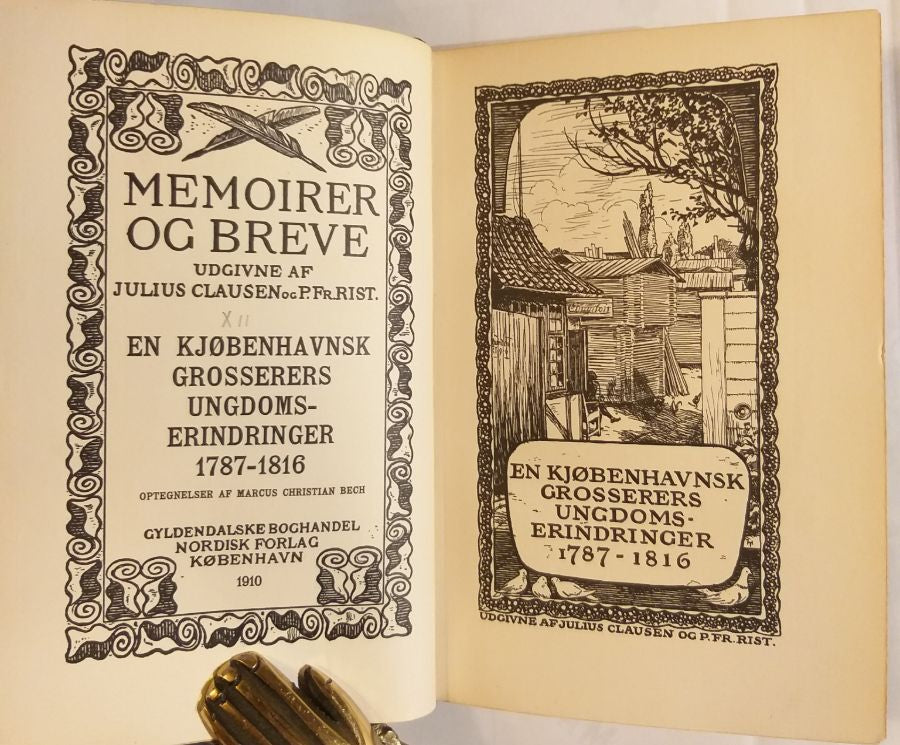 MEMOIRER
OG BREVE
UDGIVNE AF
JULIUS CLAUSEN OG P. FR. RIST.
XII
EN KJØBENHAVNSK
GROSSERERS
UNGDOMS-
ERINDRINGER
1787-1816
OPTEGNELSER AF MARCUS CHRISTIAN BECH
GYLDENDALSKE BOGHANDEL
NORDISK FORLAG
KØBENHAVN
1910
EN KJØBENHAVNSK
GROSSERERS
UNGDOMS-
ERINDRINGER
1787-1816
UDGIVNE AF JULIUS CLAUSEN OG P. FR. RIST.